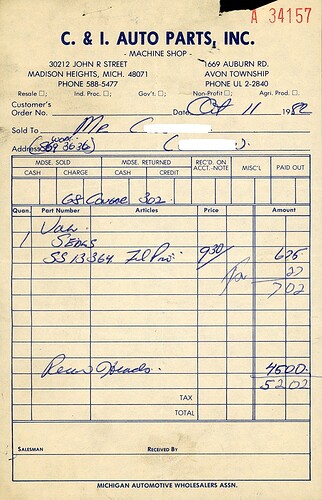 A 34157
C. & I. AUTO PARTS, INC.
- MACHINE SHOP -
30212 JOHN R STREET 1669 AUBURN RD.
MADISON HEIGHTS, MICH. 48071 AVON TOWNSHIP
PHONE 588-5477 PHONE UL 2-2840
Resale □; Ind. Proc. □; Gov't. □; Non-Profit □; Agri. Prod. □.
Customer's
Order No. Date Oct 11 1982
Sold To Mr C
work
Address 3636
MDSE. SOLD MDSE. RETURNED REC'D. ON ACCT.-NOTE MISC'L PAID OUT
CASH CHARGE CASH CREDIT
68 Cougar 302
Quan. Part Number Articles Price Amount
1 Valve
Seals
SS 13364 930 675
Tax 27
702
Heads 4500
5202
TAX
TOTAL
SALESMAN RECEIVED BY
MICHIGAN AUTOMOTIVE WHOLESALERS ASSN.